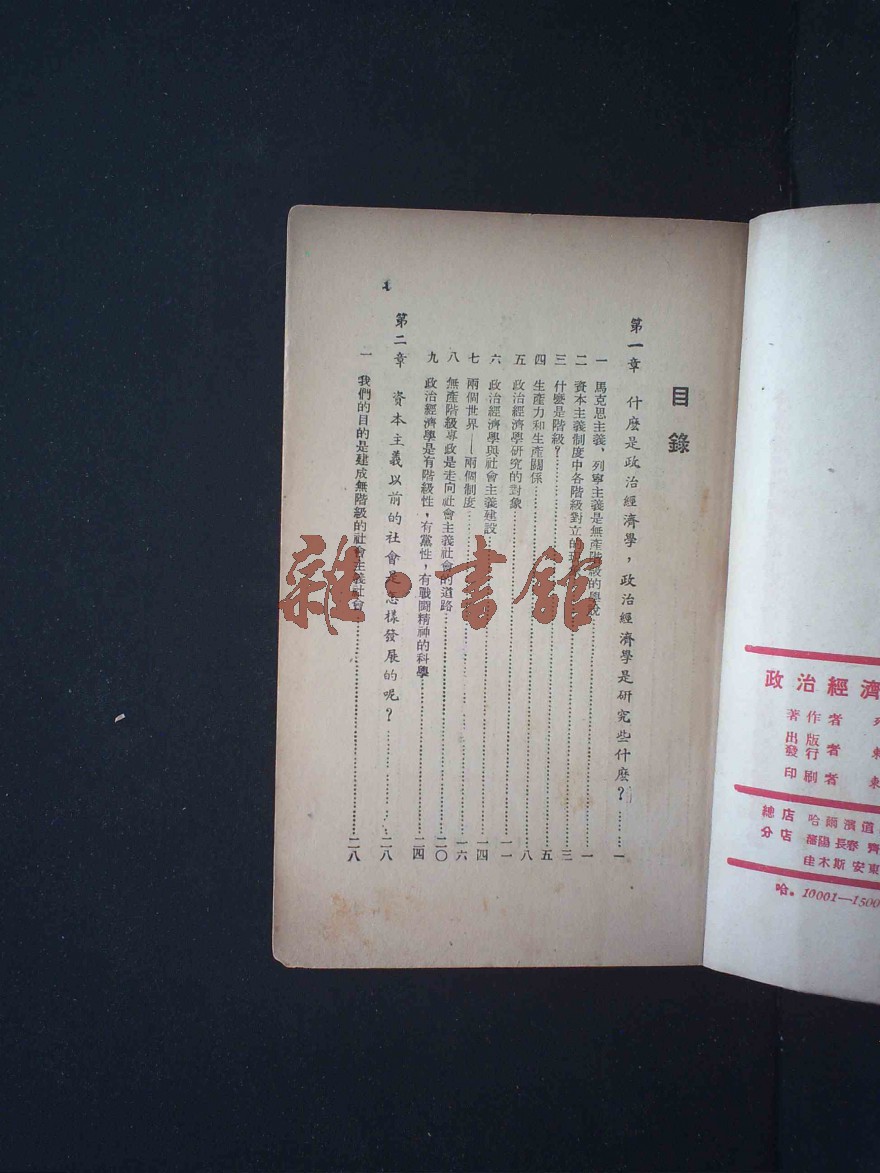 目錄
第一章 什麽是政治經濟學，政治經濟學是研究些什麽？………一
一 馬克思主義、列寧主義是無產階級的學說………一
二 資本主義制度中各階級對立的………三
三 什麽是階級？………五
四 生產力和生產關係………八
五 政治經濟學研究的對象………一一
六 政治經濟學與社會主義建設………一四
七 兩個世界——兩個制度………一六
八 無產階級專政是走向社會主義社會的道路………二〇
九 政治經濟學是有階級性，有黨性，有戰鬪精神的科學………二四
第二章 資本主義以前的社會是怎樣發展的呢？………二八
一 我們的目的是建成無階級的社會主義社會………二八
雜·書館
政治經濟
著作者
出版
發行者
印刷者 東
總店 哈爾濱道
分店 瀋陽 長春 齊
佳木斯 安東
哈。10001—1500